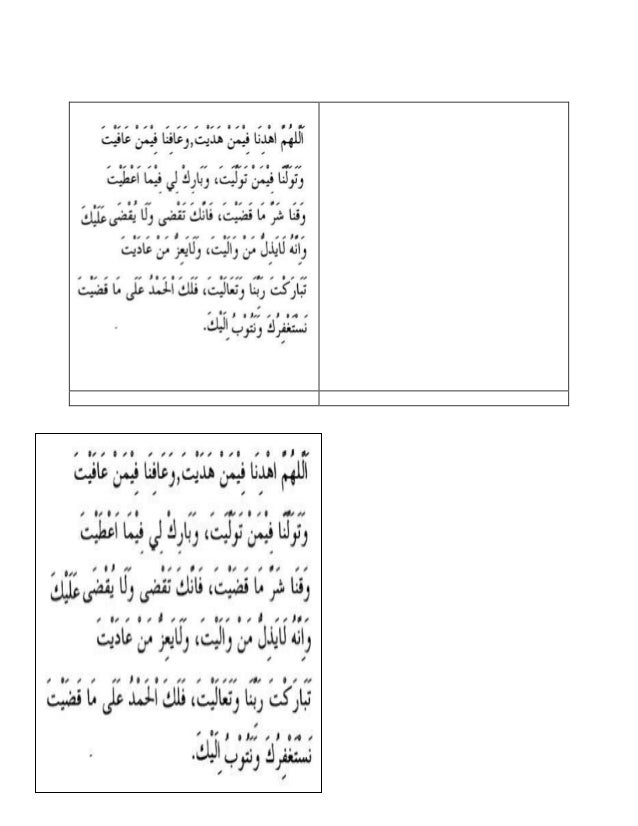 اَللّٰهُمَّ اهْدِنَا فِيْمَنْ هَدَيْتَ,وَعَافِنَا فِيْمَنْ عَافَيْتَ
وَتَوَلَّنَا فِيْمَنْ تَوَلَّيْتَ، وَبَارِكْ لِي فِيْمَا اَعْطَيْتَ
وَقِنَا شَرَّ مَا قَضَيْتَ، فَاِنَّكَ تَقْضِى وَلَا يُقْضَى عَلَيْكَ
وَاِنَّهُ لَايَذِلُّ مَنْ وَالَيْتَ، وَلَايَعِزُّ مَنْ عَادَيْتَ
تَبَارَكْتَ رَبَّنَا وَتَعَالَيْتَ، فَلَكَ الْحَمْدُ عَلَى مَا قَضَيْتَ
نَسْتَغْفِرُكَ وَنَتُوْبُ اِلَيْكَ.
اَللّٰهُمَّ اهْدِنَا فِيْمَنْ هَدَيْتَ,وَعَافِنَا فِيْمَنْ عَافَيْتَ
وَتَوَلَّنَا فِيْمَنْ تَوَلَّيْتَ، وَبَارِكْ لِي فِيْمَا اَعْطَيْتَ
وَقِنَا شَرَّ مَا قَضَيْتَ، فَاِنَّكَ تَقْضِى وَلَا يُقْضَى عَلَيْكَ
وَاِنَّهُ لَايَذِلُّ مَنْ وَالَيْتَ، وَلَايَعِزُّ مَنْ عَادَيْتَ
تَبَارَكْتَ رَبَّنَا وَتَعَالَيْتَ، فَلَكَ الْحَمْدُ عَلَى مَا قَضَيْتَ
نَسْتَغْفِرُكَ وَنَتُوْبُ اِلَيْكَ.